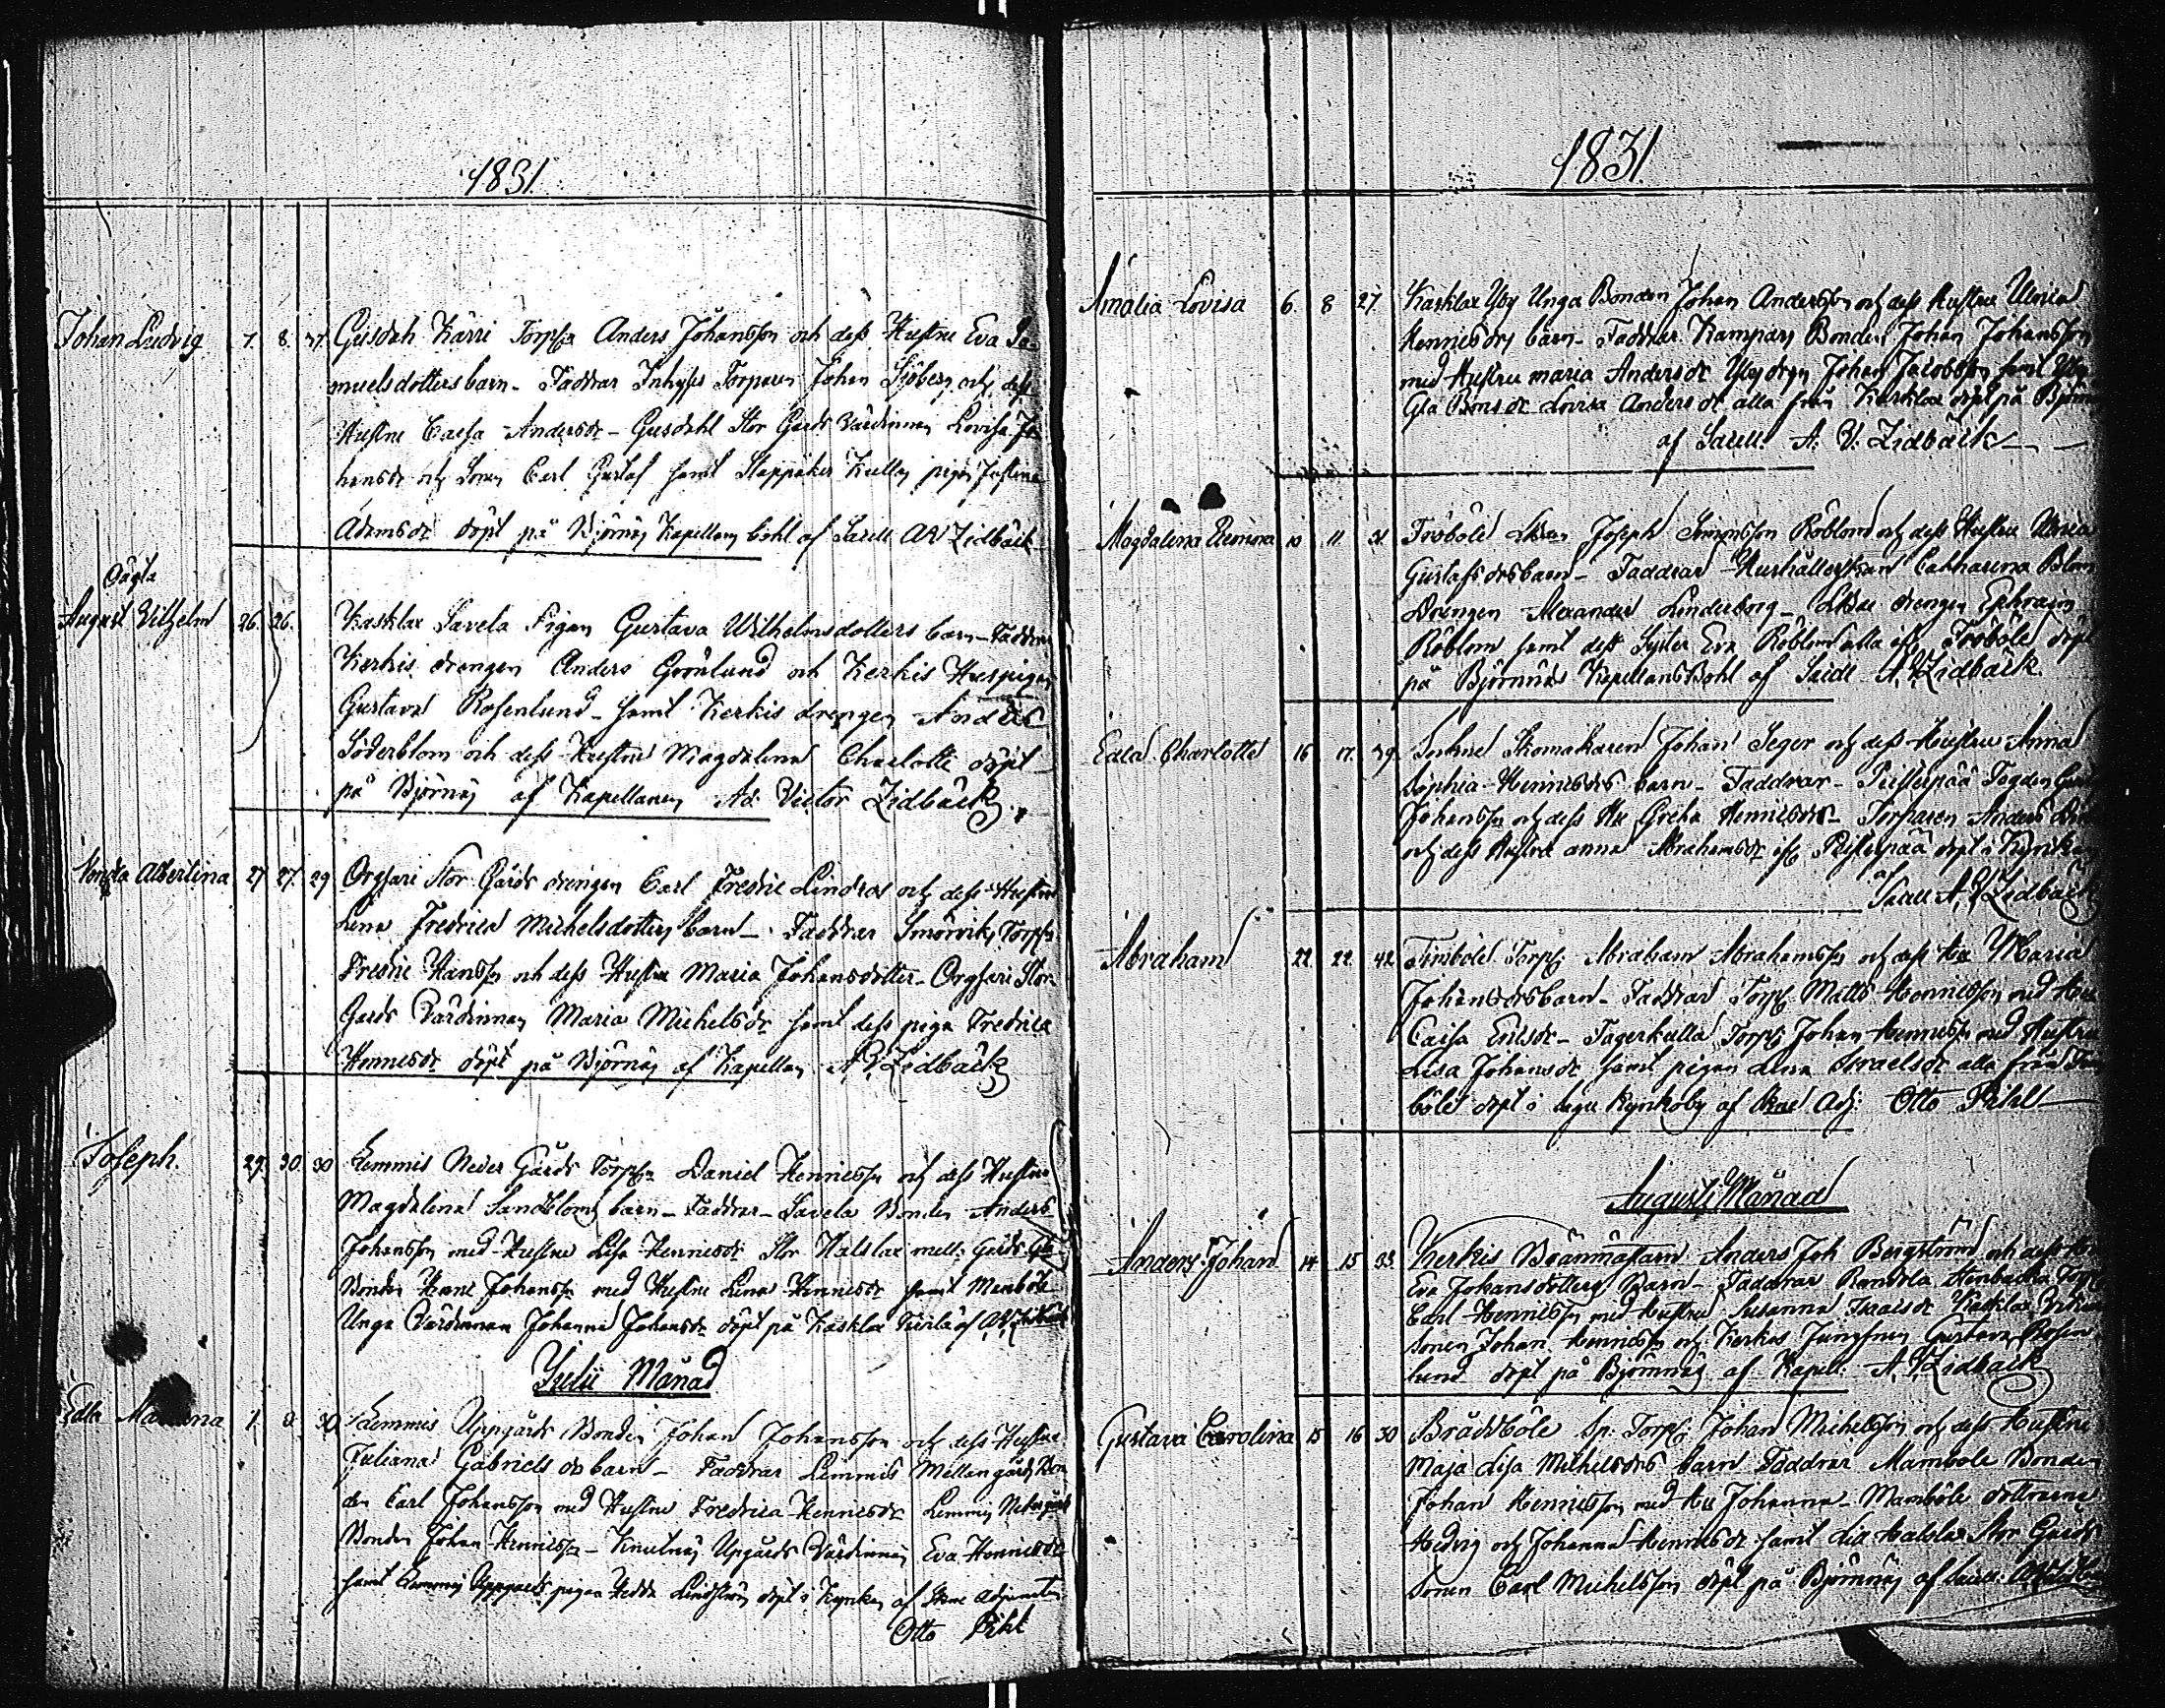 1831.
Johan Ludvig 7. 8. 37 Gusdah Kärri Torpn Anders Johansson och dess Hustru Eva Sa-
muelsdotters barn - Faddrar Torparen Johan Sjöberg och dess
Hustru Caisa Andersdr - Gusdahl Stor Gårds Värdinnan Lovisa Jo
hansdr och Sonen Carl Gustaf samt pigan Justina
Adamsdr döpt på Björnäs Kapellans bohl af Sacell AV Zidbäck
Oägta
August Vilhelm 26. 26. Kasklax Savela Pigan Gustava Wilhelmsdotters barn - Faddrar
Kerkis drengen Anders Grönlund och Kerkis Huspigan
Gustava Rosenlund - samt Kerkis drengen Anders
Söderblom och dess Hustru Magdalena Charlotta döpt
på Björnäs af Kapellanen Ad. Victor Zidbäck.
Albertina 27 27. 29 Stor Gårds drengen Carl Fredric Lindros och dess Hustru
Lena Fredrica Michelsdotters barn - Faddrar Smörviks Torpn
Fredric Hansson och dess Hustru Maria Johansdotter - Stor
Gårds Värdinnan Maria Michelsdr samt dess piga Fredrica
Hennicsdr döpt på Björnäs af Kapellan A V Zidbäck
Joseph. 29. 30. 30 Lemmis Neder Gårds Torpn Daniel Hennicsson och dess Hustru
Magdalena Sandbloms barn - Faddrar - Savela Bonden Anders
Johansson med Hustru Lisa Hennicsdr Stor Halslax mell: Gårds
Bonden Johansson med Hustru Lena Hennicsdr samt Mambole
Unga Värdinnan Johanna Johansdr döpt på Kasklax af AV Zidbäck
Julii Månad
Edla 1. 30 Lemmis Uppgårds Bonden Johan Johansson och dess Hustru
Juliana Gabriels drs barn - Faddrar Lemmis Mellangårds Bon
den Carl Johansson med Hustru Fredrica Hennicsdr Lemmis Nedergårds
Bonden Johan Hennicsson - Knutnäs Upgårds Värdinnan Eva Hennicsdr
samt Lemmis Uppgårds pigan Hedda Lindström döpt i Kyrkan af Adjuncten
Otto Pihl
1831.
Amalia Lovisa 6. 8 27. Kasklax Yby Unga Bonden Johan Andersson och dess Hustru Ulrica
Hennicsdrs barn - Faddrar Bonden Johan Johansson
med Hustru Maria Andersdr drgn Johan Jacobsson samt
Lovisa Andersdr alla från Kasklax döpt på
af Sacell: A. V. Zidbäck
Magdalena 10 11 31 Fröböle Joseph Simonsson Röblom och dess Hustru Ulrica
Gustafsdrs barn - Faddrar Hushållerskan Catharina Blom
Drengen Alexander Linderborg - drengen Ephraim
Röblom samt dess Syster Eva Röblom alla ifr Fröböle döpt
på Björnnäs Kapellans Bohl af Sacell A. V. Zidbäck.
Edla Charlotta 16 17. 39. Skomakaren Johan Seger och dess Hustru Anna
Sophia Hennicsdrs barn - Faddrar - Pellespää
Johansson och dess Hu Greta Hennicsdr - Torparen Anders
och dess Hustru Anna Abrahamsdr ifr Pellespää döpt i Kyrkan
af
Sacell A. V. Zidbäck
Abraham 22. 22. 42 Finböle Torpn Abraham Abrahamsson och dess Hu Maria
Johansdrs barn - Faddrar Torpn Matts Hennicsson med Hu
Caisa Ericsdr - Torpn Johan Hennicsson med Hustru
Lisa Johansdr samt pigan Lena Israelsdr alla från Fin
böle döpt i Kyrkoby af Adj: Otto Pihl
Augusti Månad
Anders Johan 14. 15 33. Kerkis Brännmästarn Anders Joh Bergström och dess Hu
Eva Johansdotters Barn - Faddrar Stenbacka Torpn
Carl Hennicsson med Hustru Susanna Isaacsdr Kasklax
sonen Johan Hennicsson och Kerkis Jungfrun Gustava Rosen
lund döpt på Björnnäs af Kapell: A. V. Zidbäck
Gustava Carolina 15 16 30 Bräddböle Torpn Johan Michelsson och dess Hustru
Maja Lisa Michelsdrs barn Faddrar Mamböle Bonden
Johan Hennicsson med Hu Johanna - Mamböle dottrarne
Hedvig och Johanna Hennicsdr samt Halslax Stor Gårds
Sonen Carl Michelsson döpt på Björnnäs af Sacell. AV Zidbäck